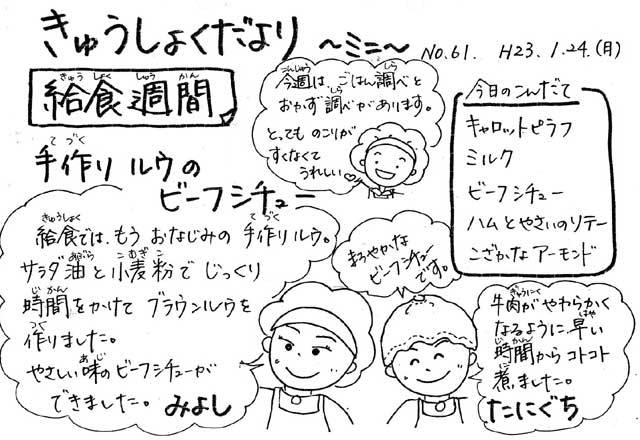 きゅうしょくだより ~ミニ~ No.61. H23.1.24.(月)
給食週間
今週は、ごはん調べと
おかず調べがあります。
とっても のこりが
すくなくて
うれしい♡
今日のこんだて
キャロットピラフ
ミルク
ビーフシチュー
ハムとやさいのソテー
こざかなアーモンド
手作りルウの
ビーフシチュー
給食では、もう おなじみの 手作りルウ。
サラダ油と小麦粉で じっくり
時間をかけて ブラウンルウを
作りました。
やさしい味のビーフシチューが
できました。 みよし
まろやかな
ビーフシチュー
です。
牛肉がやわらかく
なるように、早い
時間からコトコト
煮ました。
たにぐち